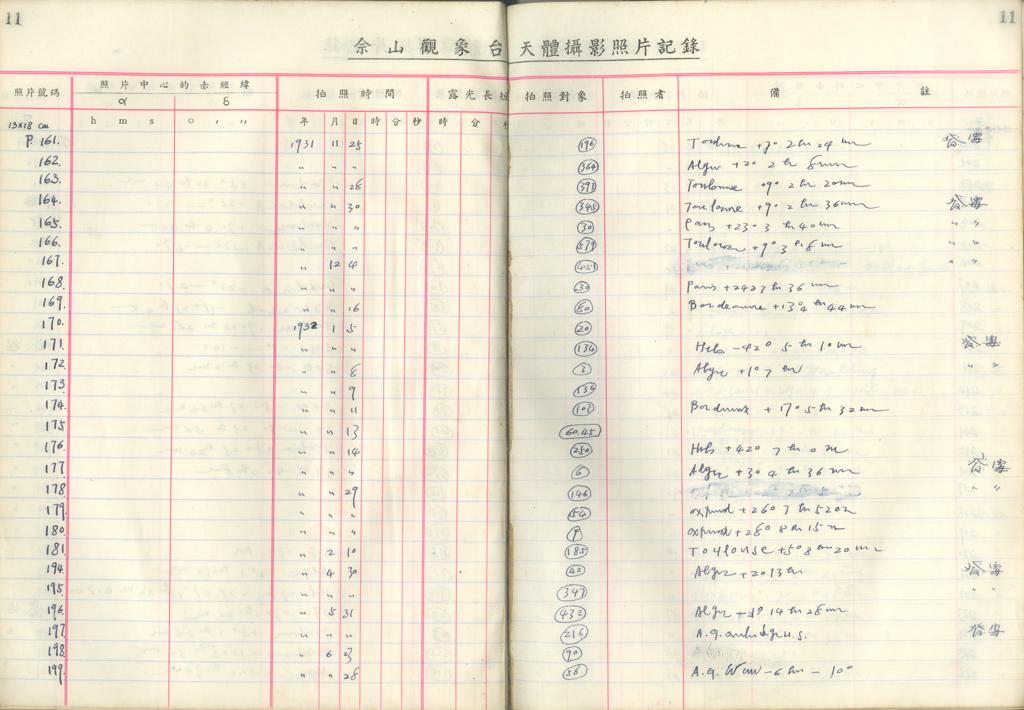 11
11
佘山觀象台天體攝影照片記錄
照片號碼 照片中心的赤經緯 拍照時間 露光長短 拍照對象 拍照者 備註
α δ
h m s ° ′ ″ 年 月 日 時 分 秒 時 分
13×18 cm
P 161. 1931 11 25 196 +7° 2 hr 24 m
162. " " " 364 Alger +2° 2 h 8 m
163. " " 28 393 Toulouse +9° 2 hr 20 m
164. " " 30 345 Toulouse +9° 2 hr 36 m
165. " " " 30 Paris +23° 3 h 40 m " "
166. " " " 579 Toulouse +9° 3 h 8 m " "
167. " 12 4 451 " "
168. " " " 30 Paris +24 23 h 36 m
169. " " 16 80 Bordeaux +13° 4 h 44 m
170. 1932 1 5 20
171. " " " 134 Hels. -42° 5 h 10 m
172. " " 8 3 Alger +1° 7 h " "
173 " " 9 139
174. " " 11 103 Bordeaux +17° 5 h 32 m
175 " " 13 60.45
176. " " 14 250 Hels +42° 7 h 0 m
177 " " " 6 Alger +3° 4 h 36 m
178 " " 29 146 " "
179 " " " 54 oxford +26° 7 h 52 m
180. " " " 9 oxford +28° 8 h 15 m
181 " 2 10 185 Toulouse +5° 8 h 20 m
194. " 4 30 42 Alger +2° 13 h
195. " " " 347 " "
196. " 5 31 432 Alger 14 h 28 m
197 " " " 216 A.G.
198 " 6 3 90
199. " " 28 56 A.G. -6 h -10°